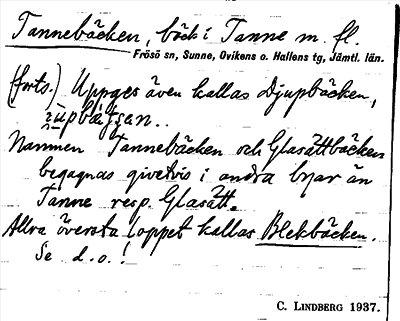 Tannebäcken, bäck i Tanne m. fl.
Frösö sn, Sunne, Ovikens o. Hallens tg, Jämtl. län.
(forts.) Uppges även kallas Djupbäcken,
Namnen Tannebäcken och Glasättbäcken
begagnas givetvis i andra byar än
Tanne resp. Glasätt.
Allra översta loppet kallas Blekbäcken.
Se d. o.!
C. LINDBERG 1937.